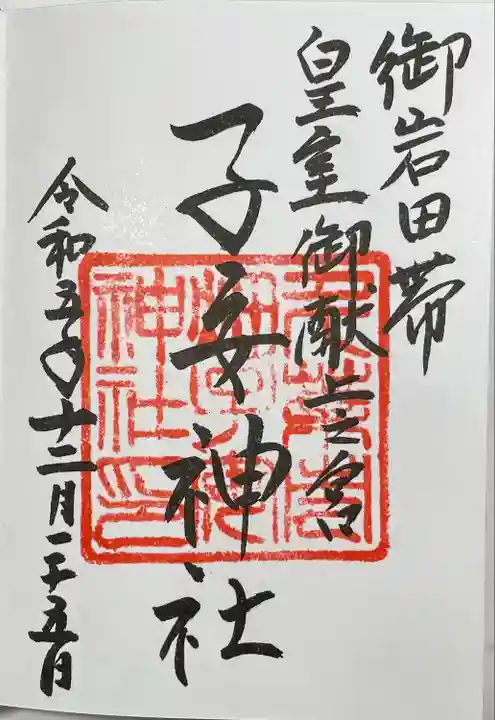 御岩田帯
皇室御献上之宮
子安神社
令和五年十二月二十五日
神社印